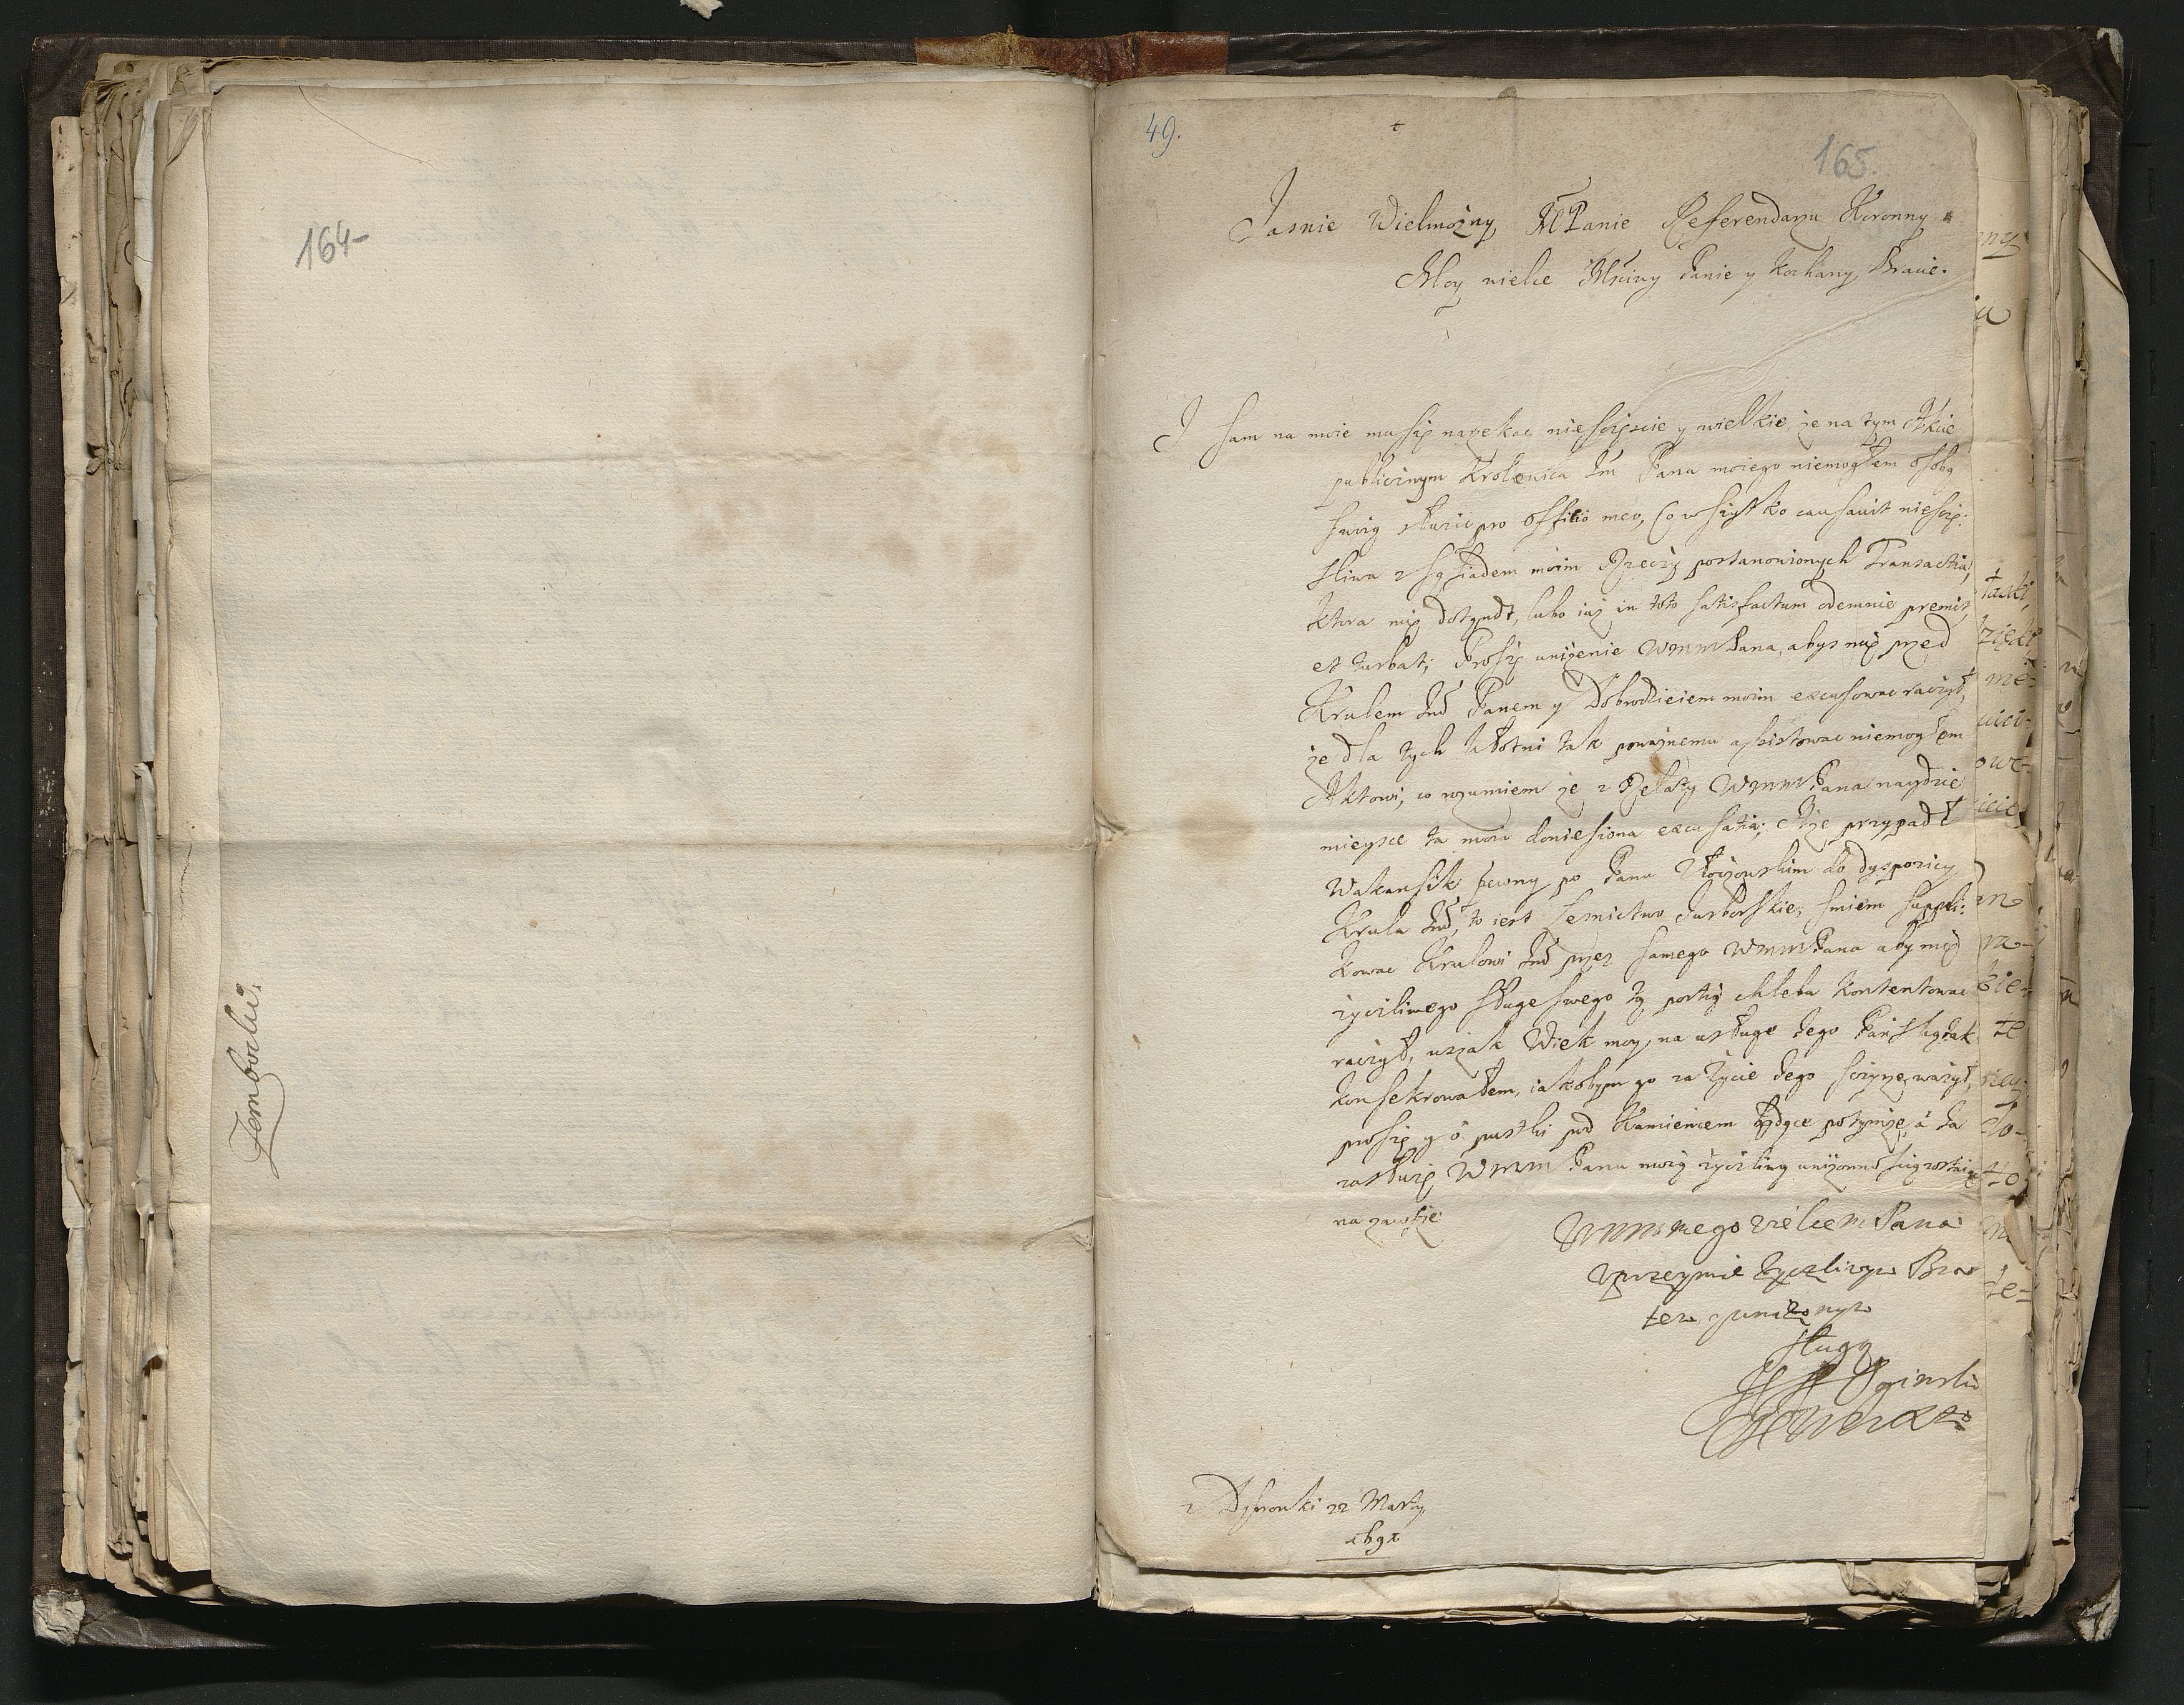 164
Zembocki
49.
165.
Jasnie Wielmożny MPanie Referendarzu Koronny
Moy wielce Mściwy Panie y kochany Bracie.
I sam na moie muszę narzekac nieszczęscie y wielkie, że na tym Akcie
publicznym Krolewica Jm Pana moiego niemogłem osobą
swoią służic pro officio meo, Co wszystko causauit nieszczę:
sliwa z sąsiadem moim Rzeczy postanowionych Transactia,
ktora mię dotąd, lubo iuż in toto satisfactum odemnie premit
et turbat; Proszę uniżenie WMM Pana, abys mię przed
Krulem Jmś Panem y Dobrodzieiem moim excusowac raczył,
że dla tych kłotni tak poważnemu assistowac niemogłem
Aktowi, co rozumiem że z Relatiy WMM Pana naydzie
mieysce ta moia doniesiona excusatia; Aże przypadł
Wakansik pewny po Panu do dyspozicy
Krula Jmś, to iest Lesnictwo Jurborskie, smiem suppli:
kowac Krulowi Jmś przez samego WMM Pana aby mię
życzliwego sługe swego tą portią chleba kontentowac
raczył, wszak Wiek moy, na usługe Jego Pańską tak
konsekrowałem, iakobym go za życie Jego szczyrze ważył,
proszę y o pustki pod Kamieniem będące potymże, á ia
zasłużę WMM Panu moią życzliwą uniżonoscią zostaiąc
na zawsze
WMM mego wielce m Pana
Uprzeymie życzliwym Bra
tem y uniżonym
sługą
Oginski
z Dąbrowki 22 Marty
1691